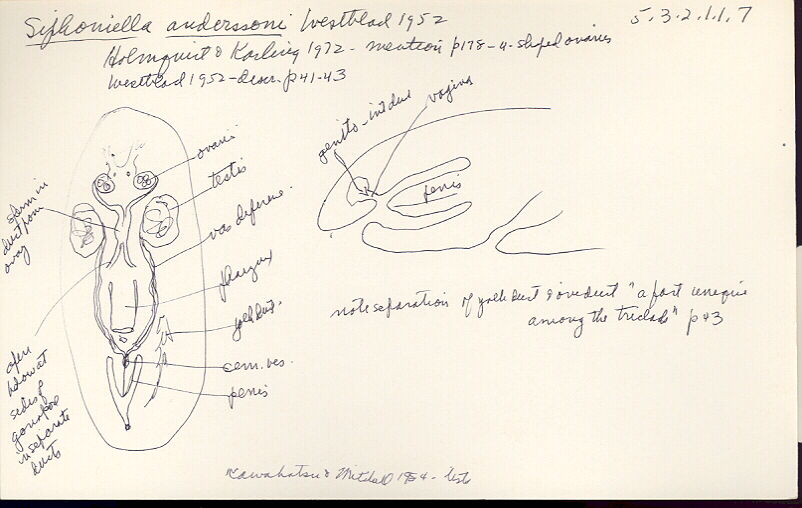 Siphoniella anderssoni Westblad 1952
5.3.2.1.1.7
Holmquist & Karling 1972 - mention p178 - u-shaped ovaries
Westblad 1952 - descr. p41-43
genito-int duct
vagina
penis
ovaries
testis
vas deferens
pharynx
yolk duct
sem. ves.
penis
sperm in
duct from
ovary
open
below at
sides of
gonopore
in separate
ducts
note separation of yolk duct & oviduct "a fact unique
among the triclads" p43
Kawakatsu & Mitchell 1984 -